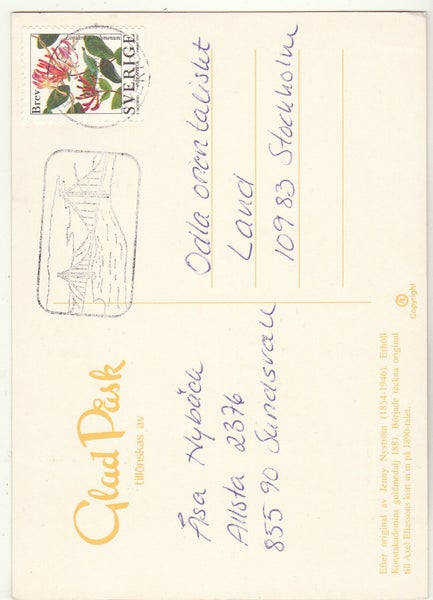 Glad Påsk
tillönskas av
Åsa Nybäck
Allsta 2376
855 90 Sundsvall
Brev
SVERIGE
Odla orientaliskt
Land
109 83 Stockholm
Copyright
Efter original av Jenny Nyström (1854-1946). Erhöll
Konstakademins guldmedalj 1881. Började teckna original
till Axel Eliassons kort m.m på 1890-talet.